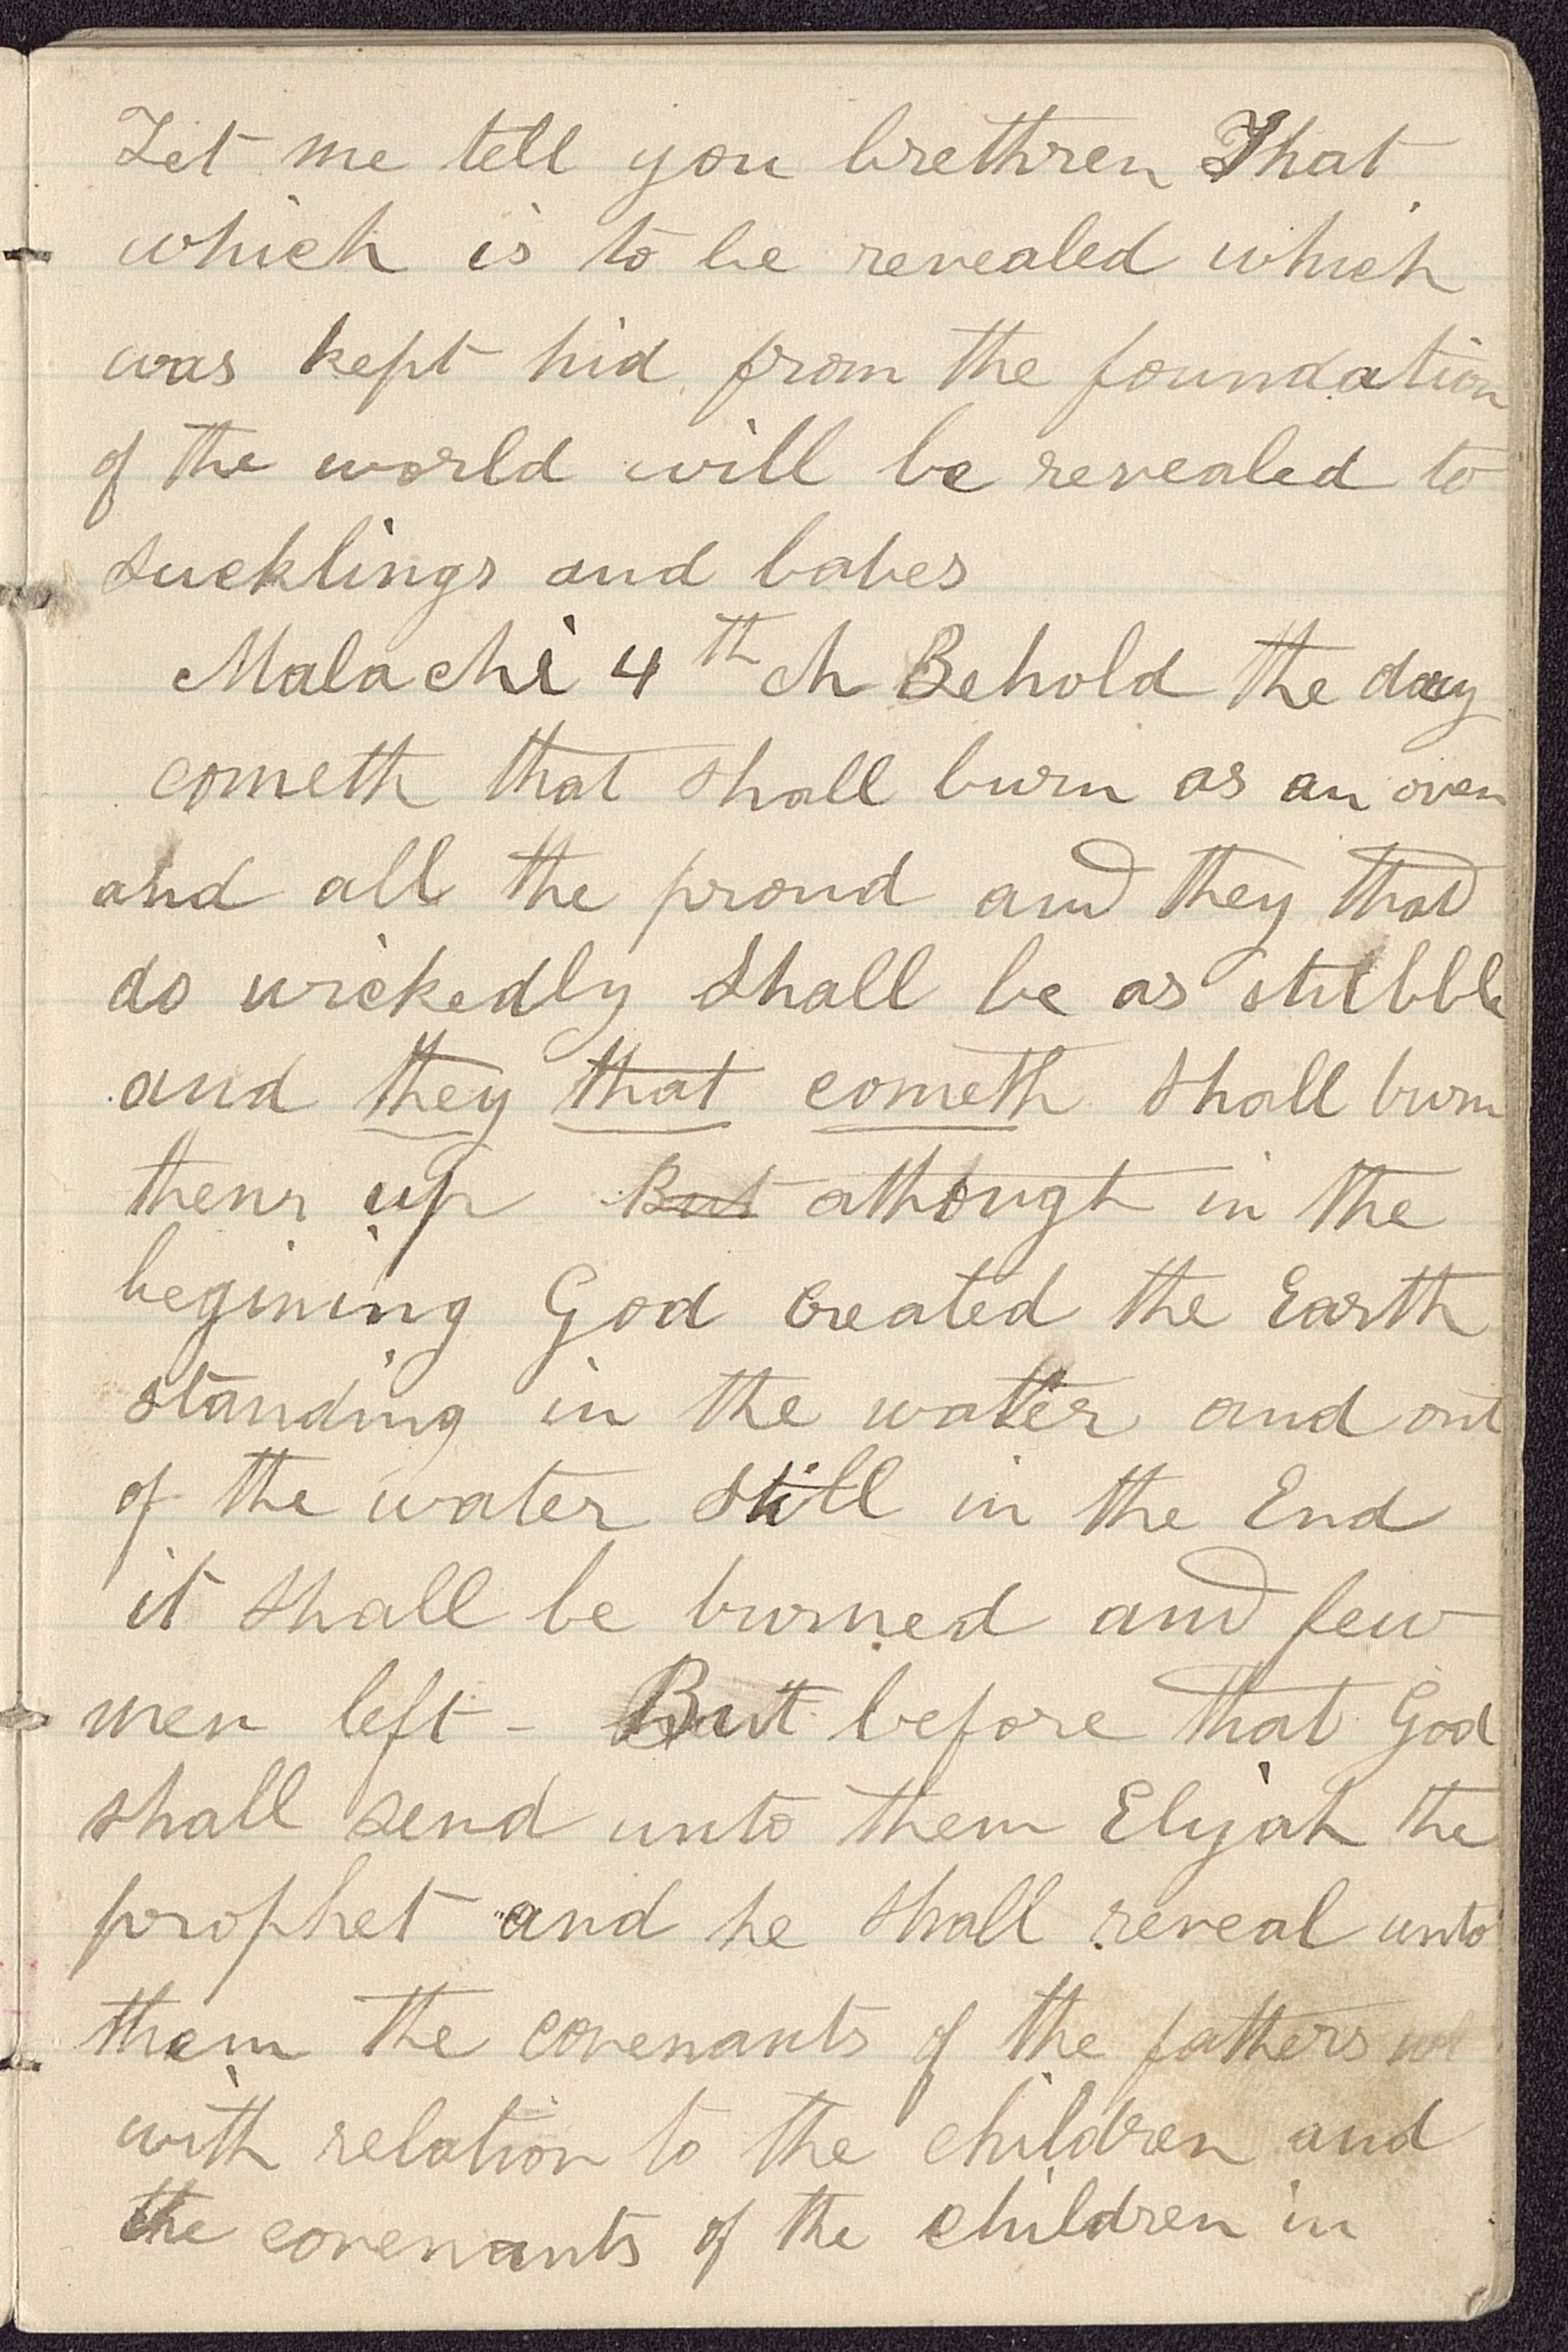 Let me tell you brethren That
which is to be revealed which
was kept hid from the foundation
of the world will be revealed to
sucklings and babes
Malachi 4th ch Behold the day
cometh that shall burn as an oven
and all the proud and they that
do wickedly shall be as stubble
and they that cometh shall burn
them up But althougt in the
begining God created the Earth
standing in the water and out
of the water still in the End
it shall be burned and few
men left - But before that God
shall send unto them Elijah the
prophet and he shall reveal unto
them the covenants of the fathers
with relation to the children and
the covenants of the children in